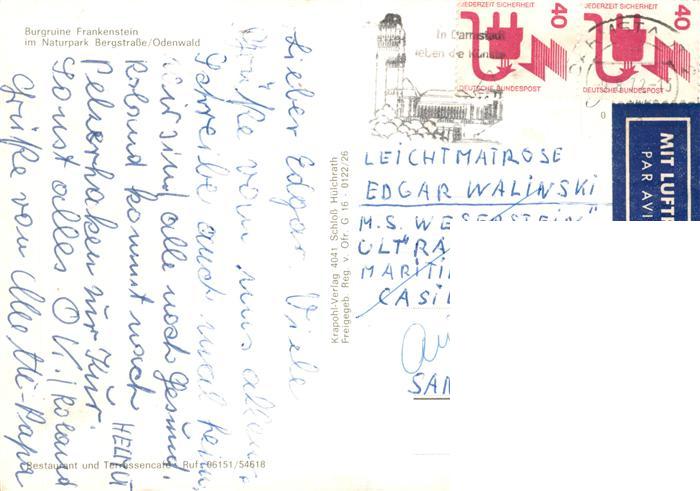 Burgruine Frankenstein
im Naturpark Bergstraße/Odenwald
Lieber Edgar. Viele
Grüße von uns allen.
Schreibe auch mal Heim,
Wir sind alle noch Gesund,
Roland kommt nach
HELMUT
Pelzerhaken zur Kur.
Sonst alles O.K./Roland
Grüße von Mutti-Papa
Restaurant und Terrassencafe Ruf: 06151/54618
Krapohl-Verlag 4041 Schloß Hülchrath
Freigegeb. Reg. v. Ofr. G 16 - 0122/26
In Darmstadt
leben die Künste
JEDERZEIT SICHERHEIT
40
DEUTSCHE BUNDESPOST
JEDERZEIT SICHERHEIT
40
DEUTSCHE BUNDESPOST
0
MIT LUFTP
PAR AVI
LEICHTMATROSE
EDGAR WALINSKI
M.S. WESERSTEIN"
ULTRA
MARITI
CASIL
SAN